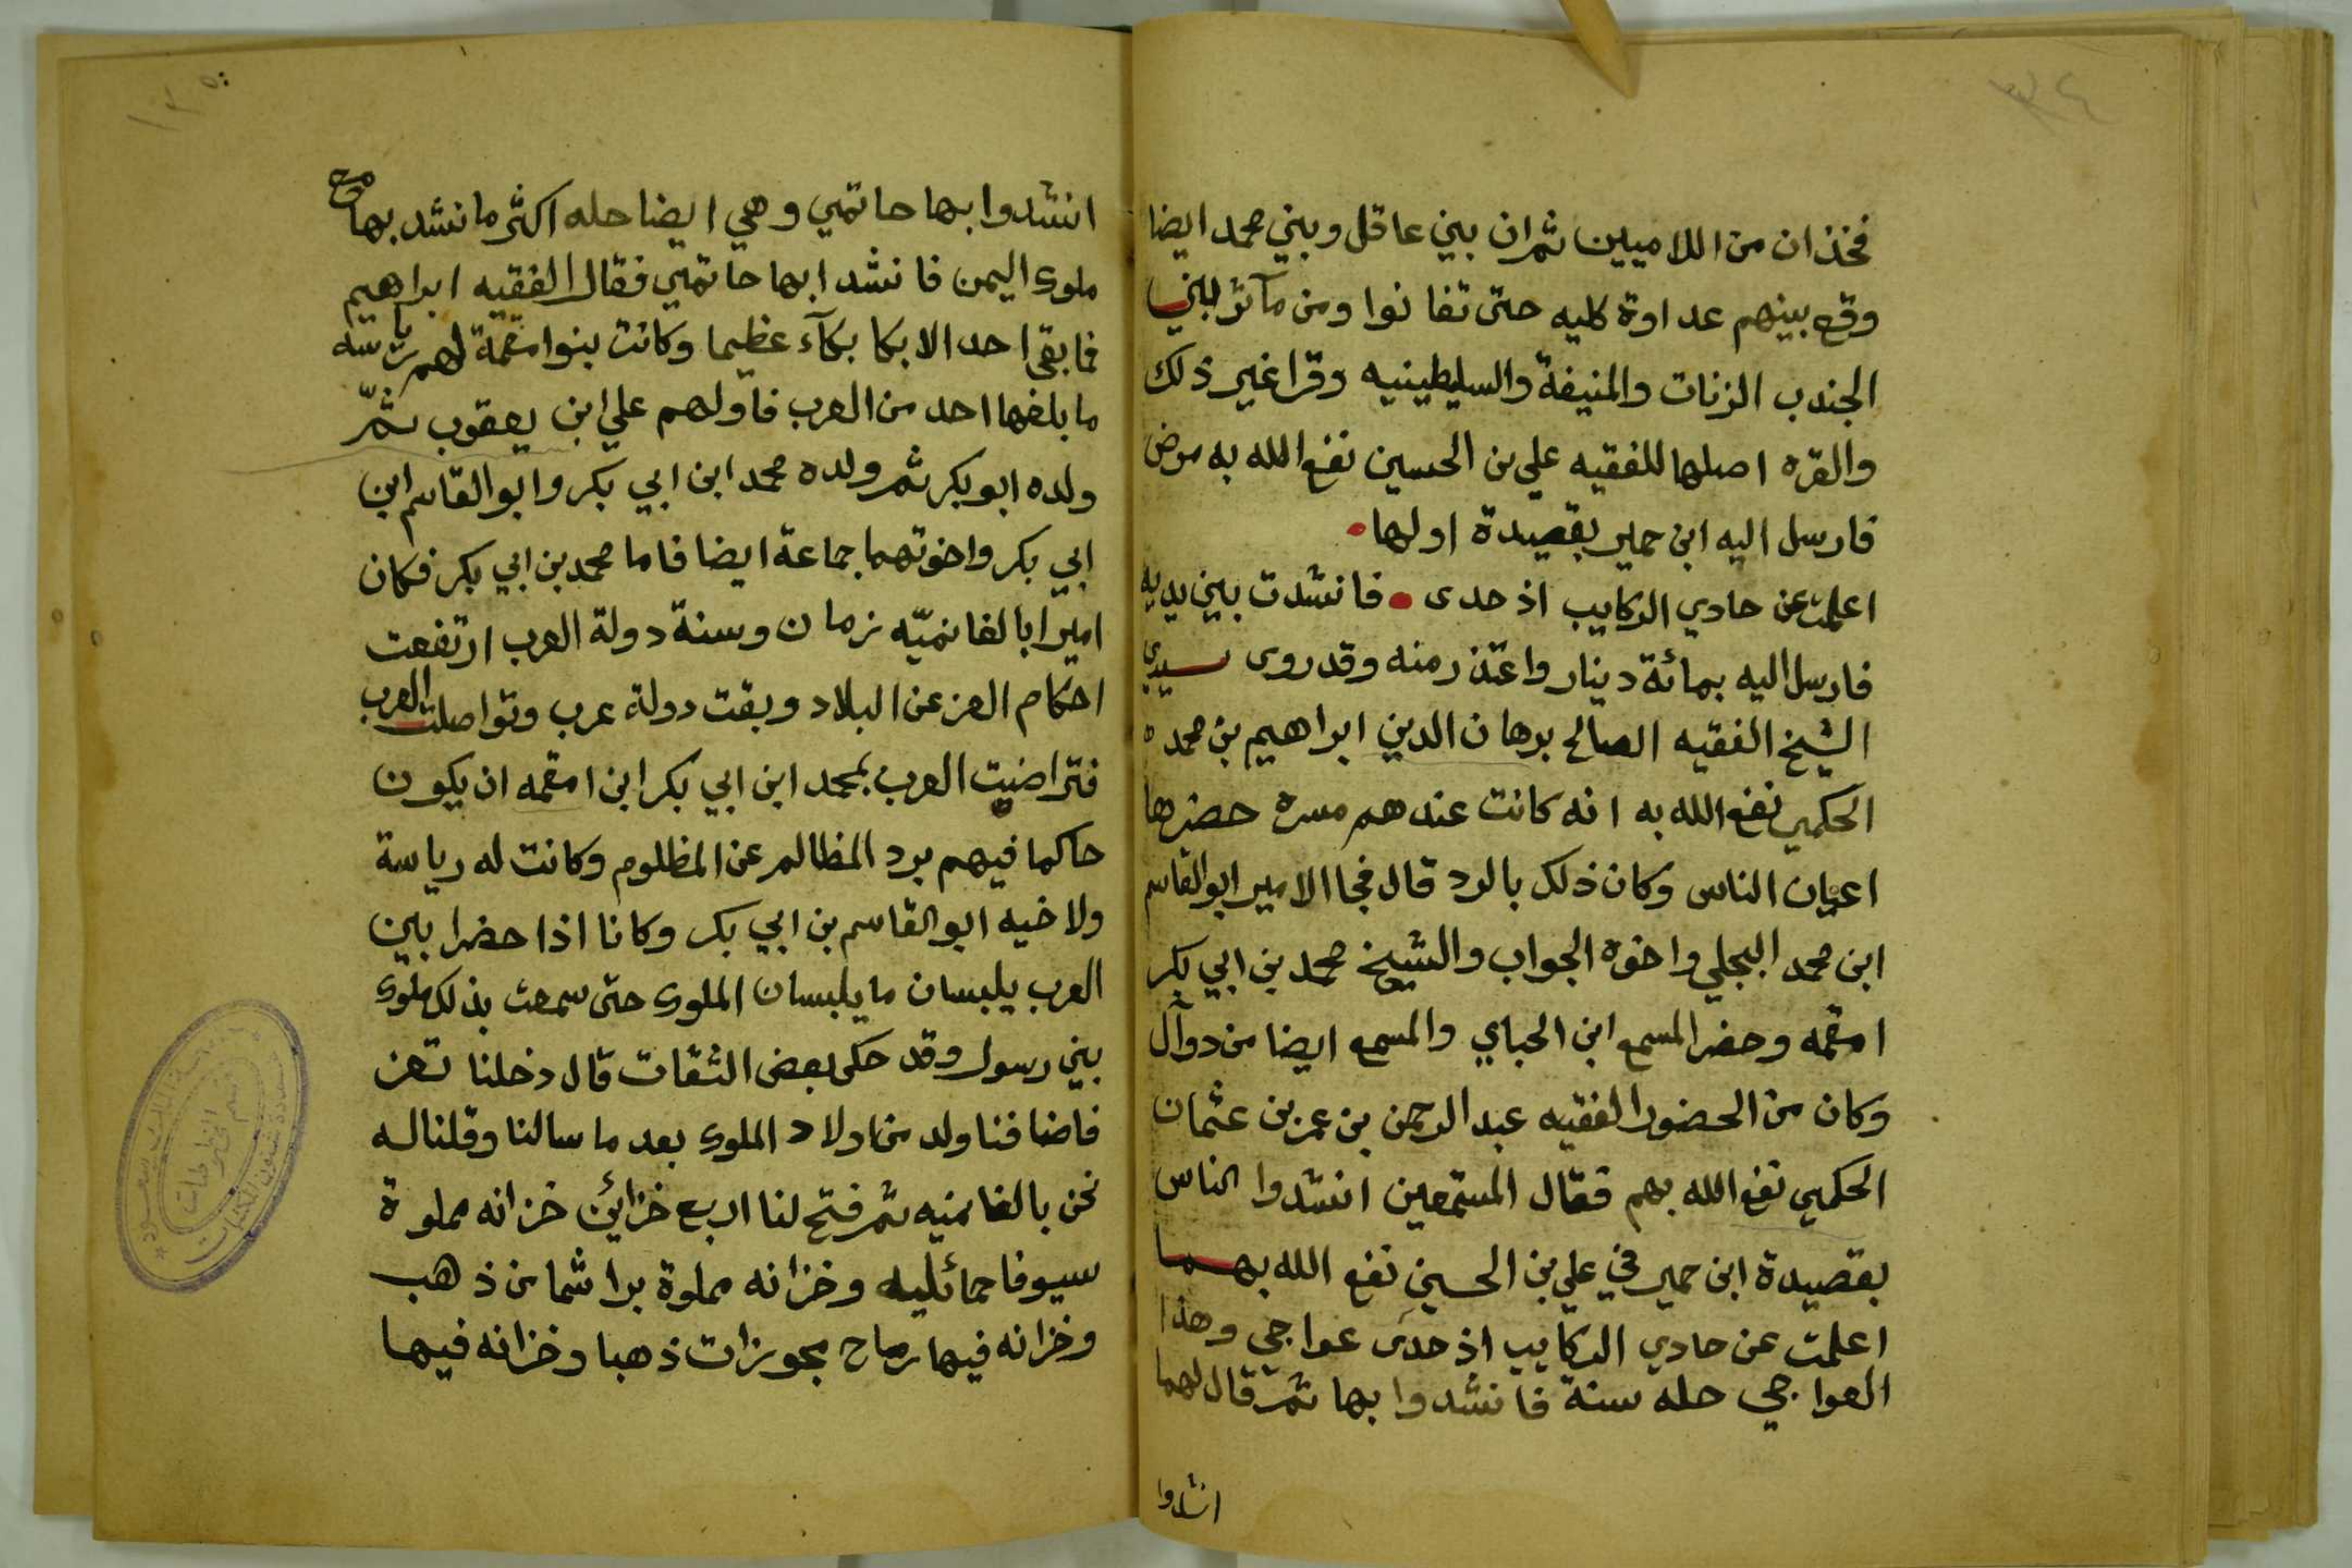 ٣٤
فخذان من اللاميين ثم ان بين عاقل وبني محمد ايضا
وقع بينهم عداوة كليه حتى تفانوا ومن مآثر لبني
الجندب الزنات والمنيفة والسليطينيه وقرا غير ذلك
والقره اصلها للفقيه علي بن الحسين نفع الله به مرض
فارسل اليه ابن حمير بقصيدة اولها
اعلمت عن حادي الركايب اذ حدى فانشدت بين يديه
فارسل اليه بمائة دينار واعتذر منه وقد روى سيدي
الشيخ الفقيه الصالح برهان الدين ابراهيم بن محمد
الحكمي نفع الله به انه كانت عندهم مسره حضرها
اعيان الناس وكان ذلك بالرد قال فجا الامير ابو القاسم
ابن محمد البجلي واخوه الجواب والشيخ محمد بن ابي بكر
امقمه وحضر المسمع ابن الحباي والمسمع ايضا من دوآل
وكان من الحضور الفقيه عبد الرحمن بن عمر بن عثمان
الحكمي نفع الله بهم فقال المستمعين انشدوا الناس
بقصيدة ابن حمير في علي بن الحسين نفع الله بهما
اعلمت عن حادي الركايب اذ حدى عواجي وهذا
العواجي حله سنة فانشدوا بها ثم قال لهما
انشدوا
انشدوا بها حاتمي وهي ايضا حله اكثر ما نشد بها مع
ملوك اليمن فانشد ابها حاتمي فقال الفقيه ابراهيم
فما بقي احد الا بكا بكآء عظيما وكانت بنوا مقمة لهم رياسه
ما بلغها احد من العرب فاولهم علي ابن يعقوب ثمّ
ولده ابو بكر ثم ولده محمد ابن ابي بكر وابو القاسم ابن
ابي بكر واخوتهما جماعة ايضا فاما محمد بن ابي بكر فكان
اميرا بالغانميّه زمان وسنة دولة العرب ارتفعت
احكام العز عن البلاد وبقت دولة عرب وتواصلت العرب
فتراضيت العرب بمحمد ابن ابي بكر ابن امقمه ان يكون
حاكما فيهم برد المظالم عن المظلوم وكانت له رياسة
ولاخيه ابو القاسم بن ابي بكر وكانا اذا حضرا بين
العرب يلبسان ما يلبسان الملوك حتى سمعت بذلك ملوك
بني رسول وقد حكى بعض الثقات قال دخلنا تعز
فاضافنا ولد من اولاد الملوك بعد ما سالنا وقلنا له
نحن بالغانميه ثم فتح لنا اربع خزائن خزانه مملوة
سيوفا حمائليه وخزانه مملوة براشما من ذهب
وخزانه فيها رماح مجوزات ذهبا وخزانه فيها